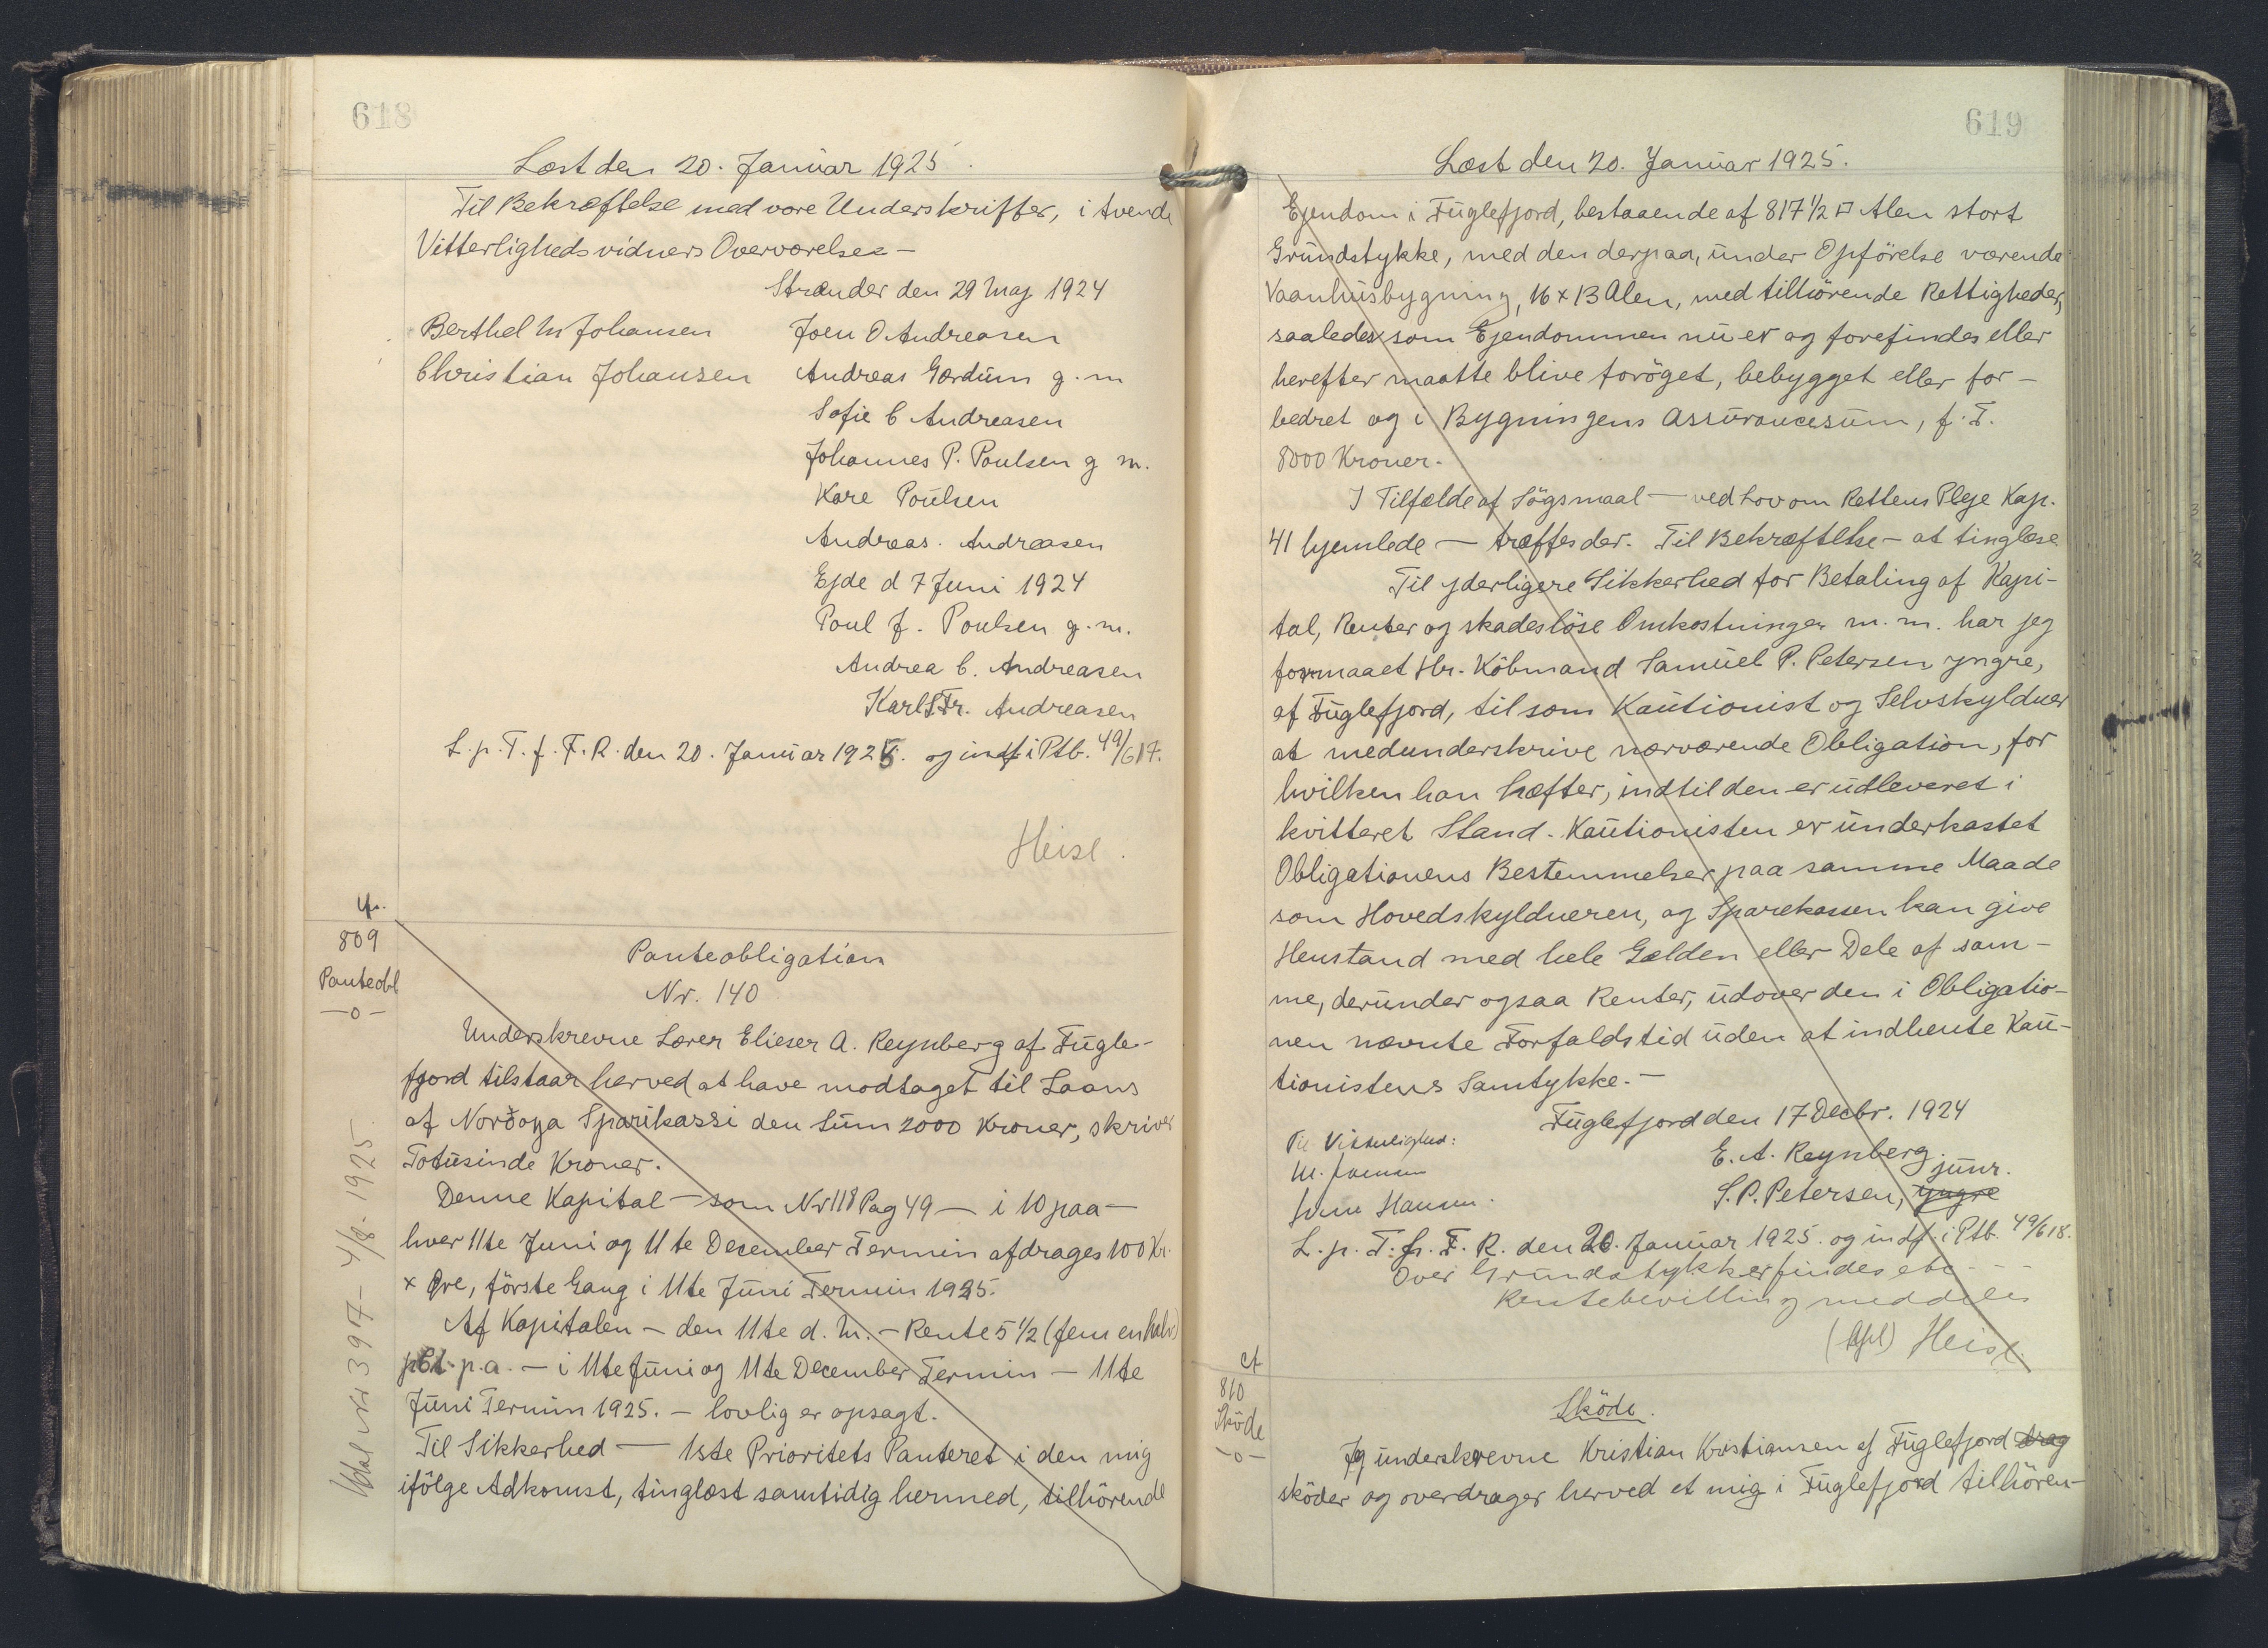 618
Læst den 20. Januar 1925.
Til Bekræftelse med vore Underskrifter, i tvende
Vitterlighedsvidners Overværelse -
Strænder den 29 Maj 1924
Berthel M Johansen Joen O Andreasen
Christian Johansen Andreas Gærdum g. m
Sofie C Andreasen
Johannes P. Poulsen g m.
Kare Poulsen
Andreas. Andreasen
Ejde d 7 Juni 1924
Poul J. Poulsen g. m.
Andrea C. Andreasen
Karl Fr. Andreasen
L. p. T. f. F. R. den 20. Januar 1925. og indf i Ptb. 49/617.
Heise.
809
Panteobl
—o—
Panteobligation
Nr. 140
Underskrevne Lærer Elieser A. Reynberg af Fugle-
fjord tilstaar herved at have modtaget til Laans
af Norðoya Sparikassi den Sum 2000 Kroner, skriver
Totusinde Kroner.
Denne Kapital - som Nr 118 Pag 49 - i 10 paa -
hver 11te Juni og 11te December Termin afdrages 100 Kr.
x Øre, förste Gang i 11te Juni Termin 1925.
Af Kapitalen - den 11te d. M. - Rente 5 1/2 (fem en halv)
pCt. p.a. - i 11te Juni og 11te December Termin - 11te
Juni Termin 1925. - lovlig er opsagt.
Til Sikkerhed - 1ste Prioritets Panteret i den mig
ifölge Adkomst, tinglæst samtidig hermed, tilhörende
Udsl. Nr 397 - 4/8. 1925.
619
Læst den 20. Januar 1925.
Ejendom i Fuglefjord, bestaaende af 817 1/2 □ Alen stort
Grundstykke, med den derpaa, under Opförelse værende
Vaanhusbygning, 16 x 13 Alen, med tilhörende Rettigheder,
saaledes som Ejendommen nu er og forefindes eller
herefter maatte blive foröget, bebygget eller for-
bedret og i Bygningens Assurancesum, f. T.
8000 Kroner.
I Tilfælde af Sögsmaal - ved Lov om Rettens Pleje Kap.
41 hjemlede - træffes der. Til Bekræftelse - at tinglæse
Til yderligere Sikkerhed for Betaling af Kapi-
tal, Renter og skadeslöse Omkostninger m. m. har jeg
formaaet Hr. Köbmand Samuel P. Petersen yngre,
af Fuglefjord, til som Kautionist og Selvskyldner
at medunderskrive nærværende Obligation, for
hvilken han hæfter, indtil den er udleveret i
kvitteret Stand. Kautionisten er underkastet
Obligationens Bestemmelser paa samme Maade
som Hovedskyldneren, og Sparekassen kan give
Henstand med hele Gælden eller Dele af sam-
me, derunder ogsaa Renter, udover den i Obligatio-
nen nævnte Forfaldstid uden at indhente Kau-
tionistens Samtykke. -
Fuglefjord den 17 Decbr. 1924
Til Vitterlighed:
E. A. Reynberg
M. Joensen
junr.
S. P. Petersen, yngre
Hansen.
L. p. T. f. F. R. den 20. Januar 1925. og indf. i Ptb. 49/618.
Over Grundstykker findes etc - - -
Rentebevilling meddeles
Heise
810
Sköde
—o—
Sköde.
Jeg underskrevne Kristian Kristiansen af Fuglefjord drag
sköder og overdrager herved et mig i Fuglefjord tilhören-